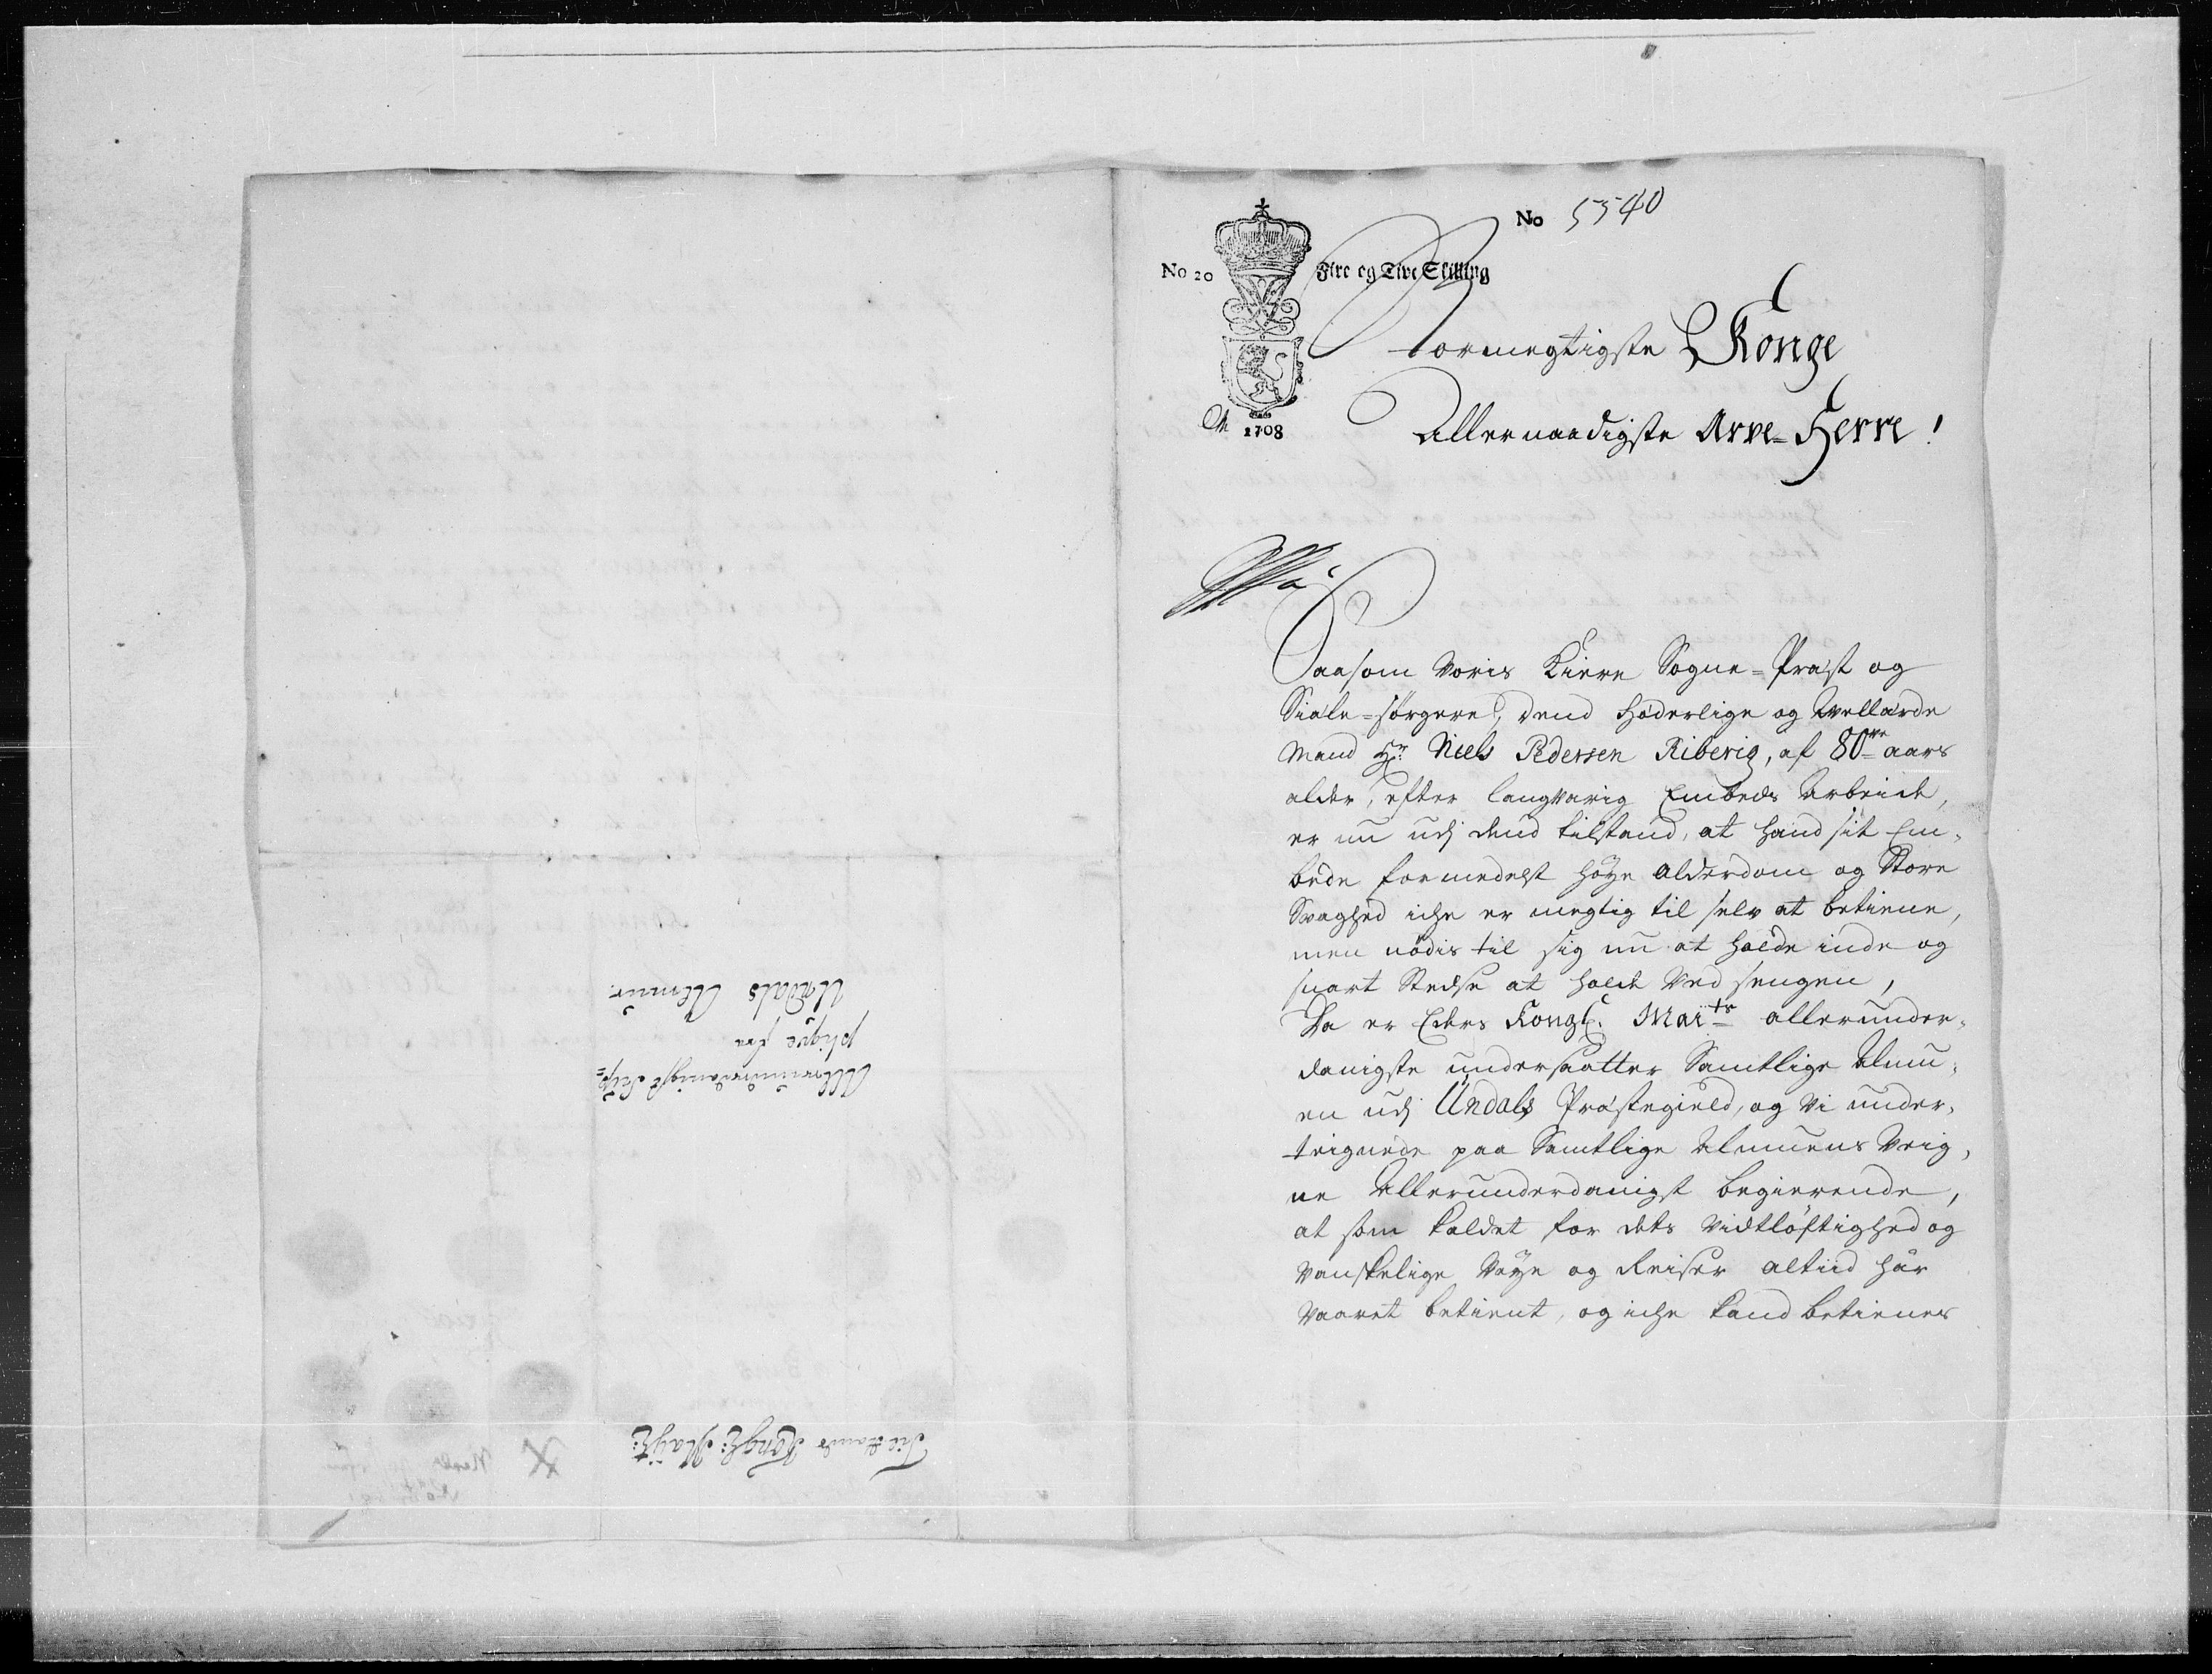 No 5540
No 20 Fire og Tive Skilling
1708
Stormegtigste Konge
Allernaadigste Arve-Herre!
Saasom voris Kiere Sogne-Præst og
Siæle-sørgere, dend Hæderlige og Wellærde
Mand Hr: Niels Pedersen Riberig, af 80ve aars
alder, efter langvarig Embeds Arbeide,
er nu udj dend tilstand, at hand sit Em-
bede formedelst høye Alderdom og Store
Svaghed iche er megtig til selv at betiene,
men nødis til sig nu at holde inde og
snart Stedse at holde ved sengen,
Da er Eders Kongl. Maits allerunder-
danigste undersaatter Samtlige Almu-
en udj Undals Præstegield, og Vi under-
teignede paa Samtlige Almuens Veig-
ne Allerunderdanigst begierende,
at som kaldet for dets Vidtløftighed og
vanskelige Veye og Reiser altiid har
vaaret betient, og iche kand betienes
Til Hands Kongl: Mayt:
Allerunderdanigst Sup=
plique fra
Undals Almue.